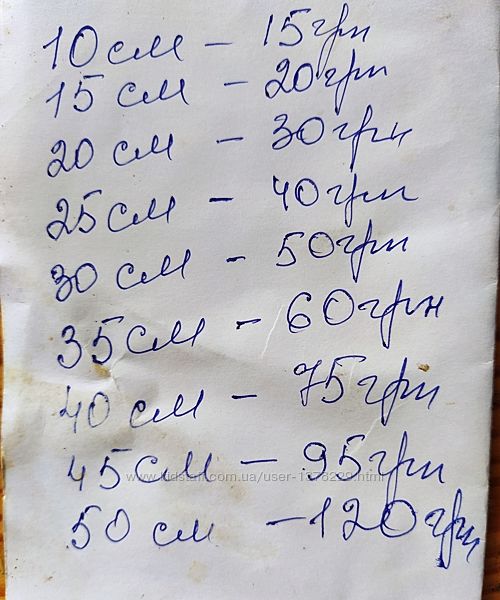 10 см – 15 грн
15 см – 20 грн
20 см – 30 грн
25 см – 40 грн
30 см – 50 грн
35 см – 60 грн
40 см – 75 грн
45 см – 95 грн
www.kidstaff.com.ua/user-1376229.html
50 см – 120 грн